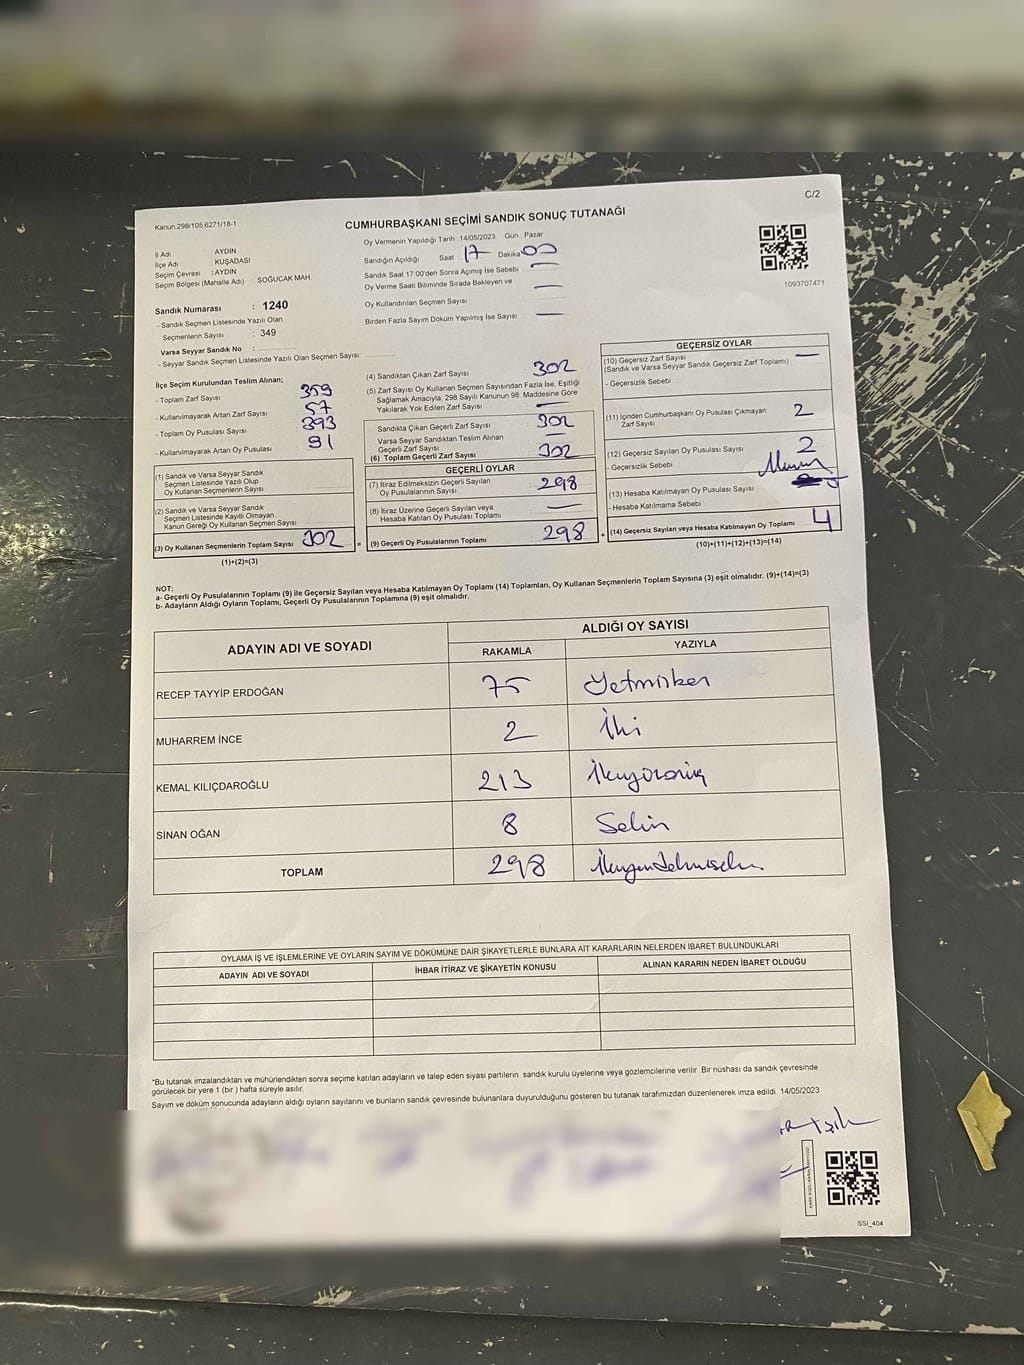 C/2
Kanun:298/105 6271/18-1
CUMHURBAŞKANI SEÇİMİ SANDIK SONUÇ TUTANAĞI
İl Adı AYDIN
İlçe Adı KUŞADASI
Seçim Çevresi : AYDIN
Seçim Bölgesi (Mahalle Adı) : SOĞUCAK MAH.
Oy Vermenin Yapıldığı Tarih :14/05/2023 Gün : Pazar
Sandığın Açıldığı Saat : 17 Dakika 00
Sandık Saat 17:00'den Sonra Açılmış İse Sebebi : —
Oy Verme Saati Bitiminde Sırada Bekleyen ve
Oy Kullandırılan Seçmen Sayısı —
Birden Fazla Sayım Döküm Yapılmış İse Sayısı : —
1093707471
Sandık Numarası : 1240
- Sandık Seçmen Listesinde Yazılı Olan
Seçmenlerin Sayısı : 349
Varsa Seyyar Sandık No :
- Seyyar Sandık Seçmen Listesinde Yazılı Olan Seçmen Sayısı:
İlçe Seçim Kurulundan Teslim Alınan;
- Toplam Zarf Sayısı 359
- Kullanılmayarak Artan Zarf Sayısı 57
- Toplam Oy Pusulası Sayısı 393
- Kullanılmayarak Artan Oy Pusulası 91
(1) Sandık ve Varsa Seyyar Sandık
Seçmen Listesinde Yazılı Olup
Oy Kullanan Seçmenlerin Sayısı
(2) Sandık ve Varsa Seyyar Sandık
Seçmen Listesinde Kayıtlı Olmayan
Kanun Gereği Oy Kullanan Seçmen Sayısı
(3) Oy Kullanan Seçmenlerin Toplam Sayısı 302
(1)+(2)=(3)
(4) Sandıktan Çıkan Zarf Sayısı 302
(5) Zarf Sayısı Oy Kullanan Seçmen Sayısından Fazla İse, Eşitliği
Sağlamak Amacıyla, 298 Sayılı Kanunun 98. Maddesine Göre
Yakılarak Yok Edilen Zarf Sayısı —
Sandıkta Çıkan Geçerli Zarf Sayısı 302
Varsa Seyyar Sandıktan Teslim Alınan
Geçerli Zarf Sayısı —
(6) Toplam Geçerli Zarf Sayısı 302
GEÇERLİ OYLAR
(7) İtiraz Edilmeksizin Geçerli Sayılan
Oy Pusulalarının Sayısı 298
(8) İtiraz Üzerine Geçerli Sayılan veya
Hesaba Katılan Oy Pusulası Toplamı —
= (9) Geçerli Oy Pusulalarının Toplamı 298
GEÇERSİZ OYLAR
(10) Geçersiz Zarf Sayısı —
(Sandık ve Varsa Seyyar Sandık Geçersiz Zarf Toplamı)
- Geçersizlik Sebebi :
(11) İçinden Cumhurbaşkanı Oy Pusulası Çıkmayan
Zarf Sayısı 2
(12) Geçersiz Sayılan Oy Pusulası Sayısı 2
- Geçersizlik Sebebi :
(13) Hesaba Katılmayan Oy Pusulası Sayısı
- Hesaba Katılmama Sebebi :
+ (14) Geçersiz Sayılan veya Hesaba Katılmayan Oy Toplamı 4
(10)+(11)+(12)+(13)=(14)
NOT:
a- Geçerli Oy Pusulalarının Toplamı (9) ile Geçersiz Sayılan veya Hesaba Katılmayan Oy Toplamı (14) Toplamları, Oy Kullanan Seçmenlerin Toplam Sayısına (3) eşit olmalıdır. (9)+(14)=(3)
b- Adayların Aldığı Oyların Toplamı, Geçerli Oy Pusulalarının Toplamına (9) eşit olmalıdır.
ADAYIN ADI VE SOYADI ALDIĞI OY SAYISI
RAKAMLA YAZIYLA
RECEP TAYYİP ERDOĞAN 75 Yetmişbeş
MUHARREM İNCE 2 İki
KEMAL KILIÇDAROĞLU 213 İkiyüzonüç
SİNAN OĞAN 8 Sekiz
TOPLAM 298 İkiyüzdoksansekiz
OYLAMA İŞ VE İŞLEMLERİNE VE OYLARIN SAYIM VE DÖKÜMÜNE DAİR ŞİKAYETLERLE BUNLARA AİT KARARLARIN NELERDEN İBARET BULUNDUKLARI
ADAYIN ADI VE SOYADI İHBAR İTİRAZ VE ŞİKAYETİN KONUSU ALINAN KARARIN NEDEN İBARET OLDUĞU
*Bu tutanak imzalandıktan ve mühürlendikten sonra seçime katılan adayların ve talep eden siyasi partilerin sandık kurulu üyelerine veya gözlemcilerine verilir. Bir nüshası da sandık çevresinde
görülecek bir yere 1 (bir) hafta süreyle asılır.
Sayım ve döküm sonucunda adayların aldığı oyların sayılarını ve bunların sandık çevresinde bulunanlara duyurulduğunu gösteren bu tutanak tarafımızdan düzenlenerek imza edildi. 14/05/2023
SSI_404